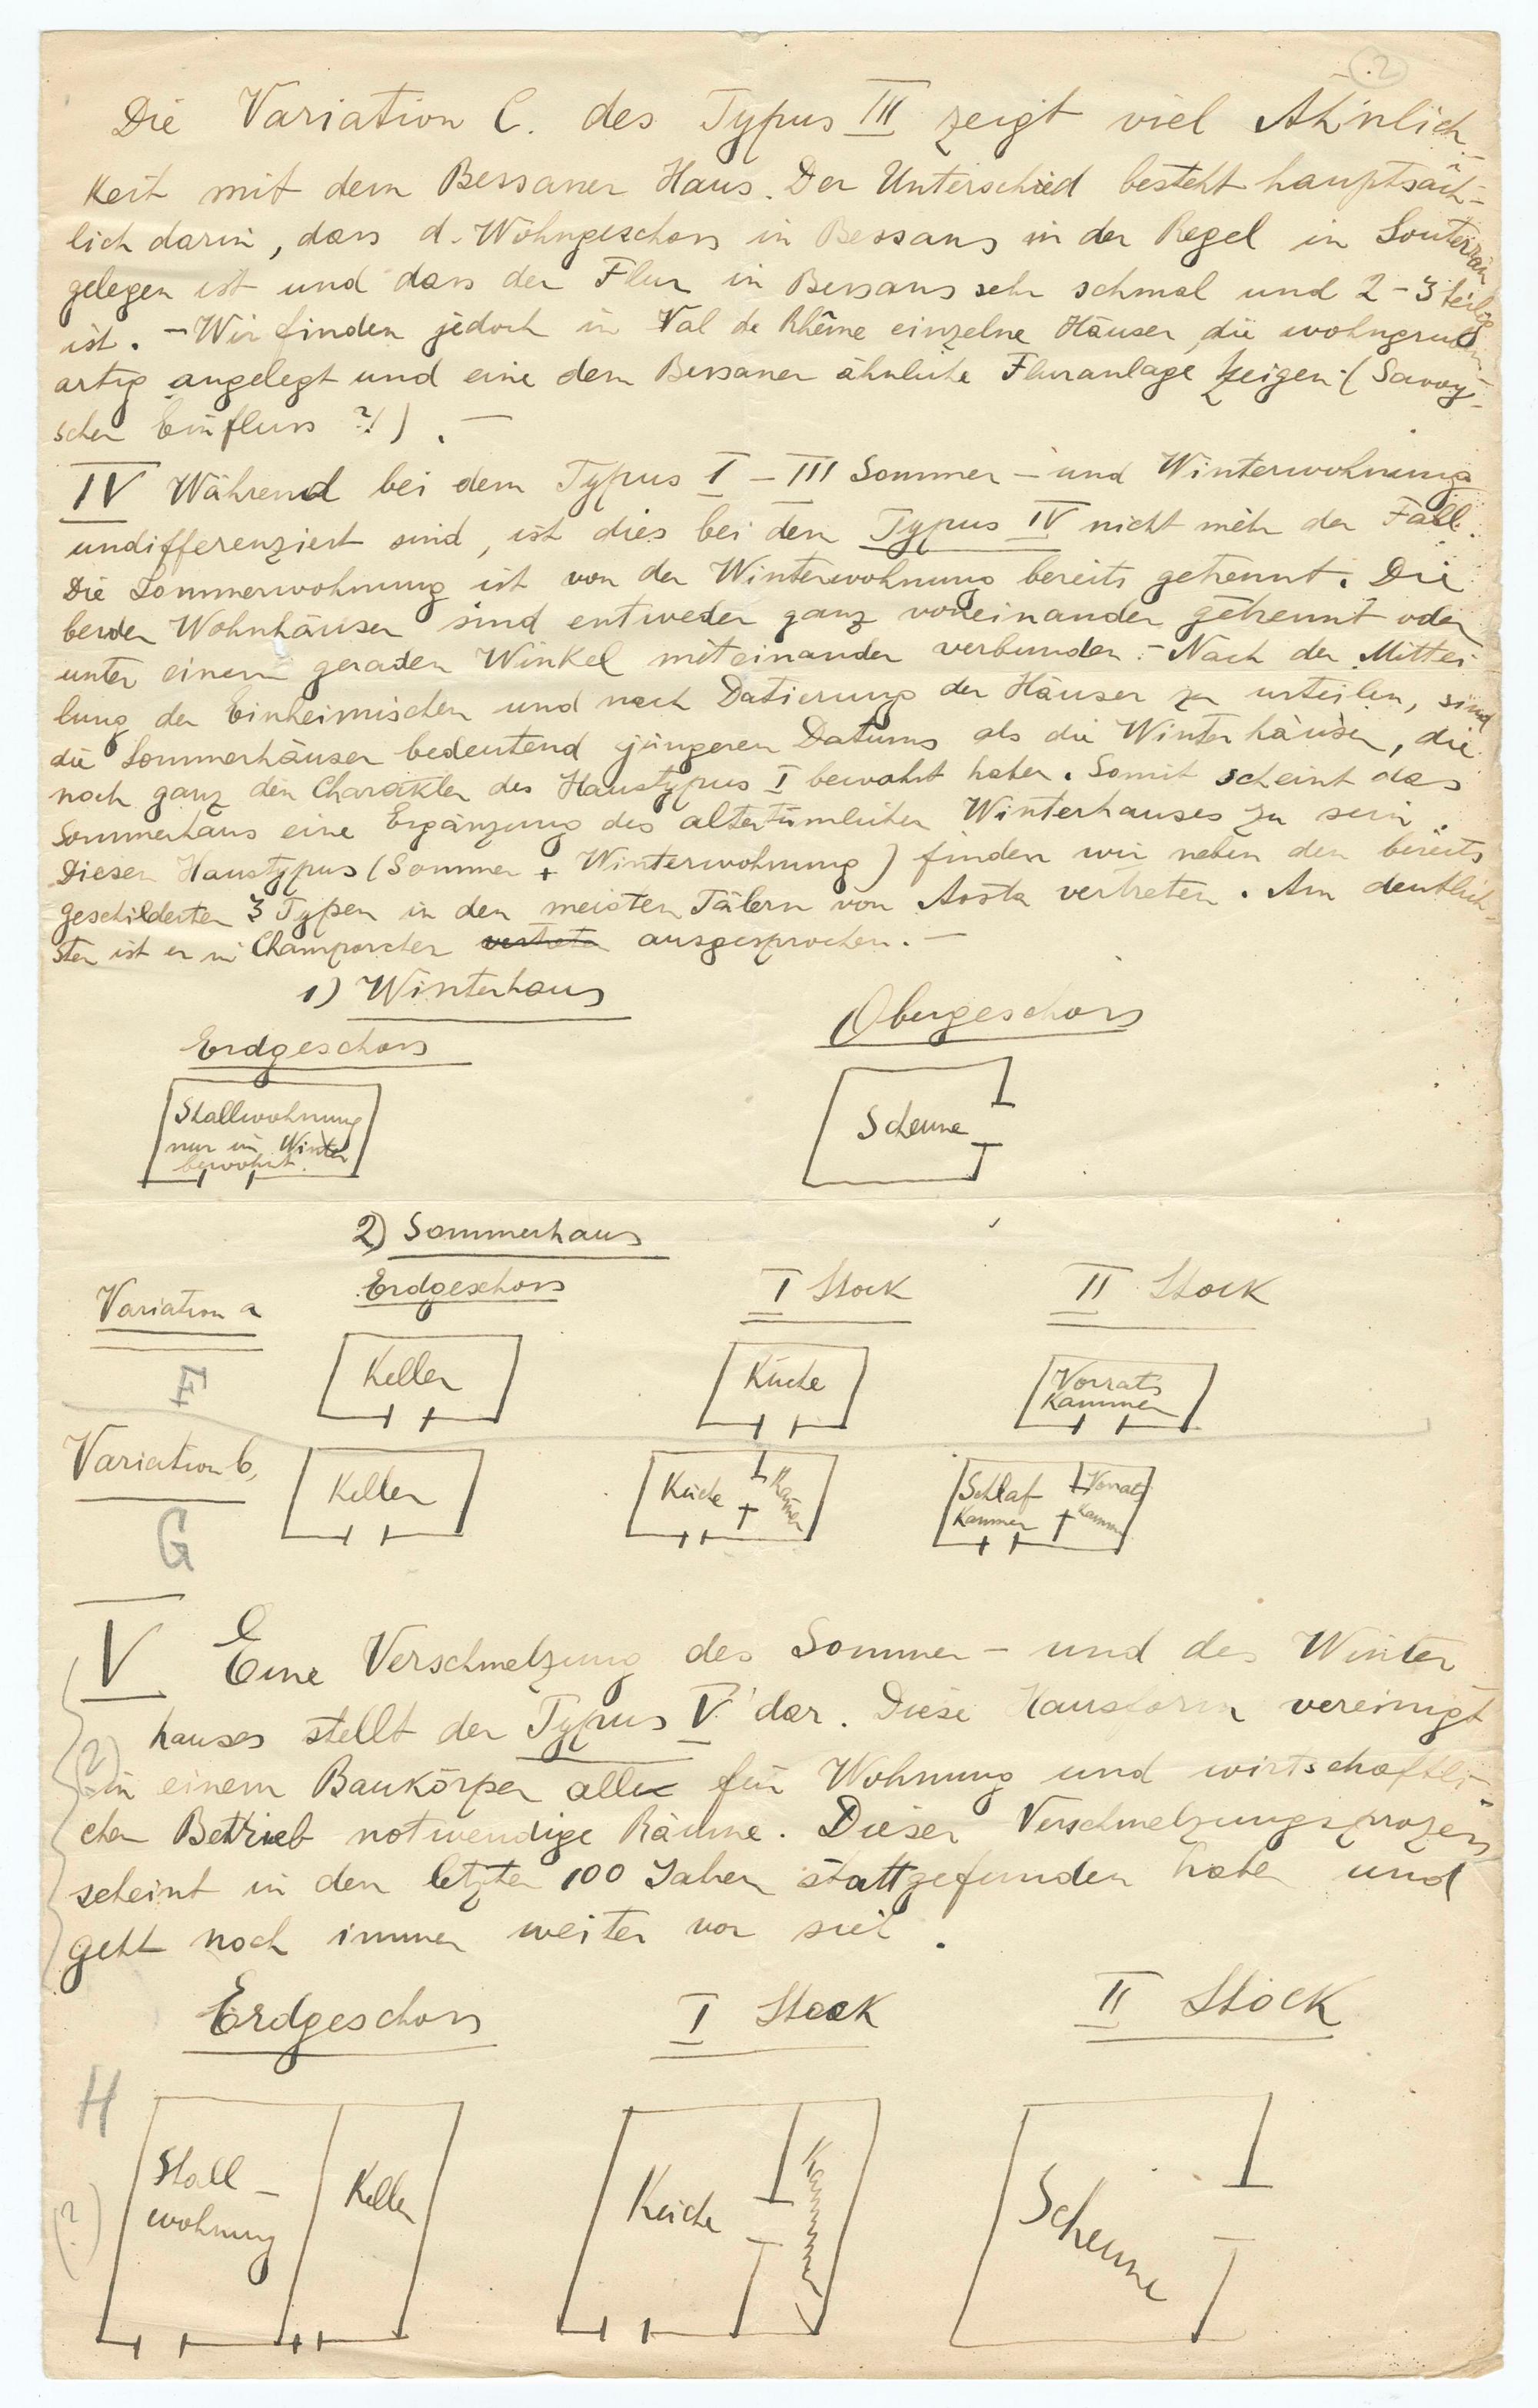 2
Die Variation C. des Typus III zeigt viel Ähnlich-
keit mit dem Bessaner Haus. Der Unterschied besteht hauptsäch-
lich darin, dass d. Wohngeschoss in Bessans in der Regel in Souterrain
gelegen ist und dass der Flur in Bessans sehr schmal und 2-3 teilig
ist. - Wir finden jedoch in Val de Rhême einzelne Häuser, die
artig angelegt und eine dem Bessaner ähnliche Fluranlage zeigen (Savoy-
scher Einfluss ?!). -
IV Während bei dem Typus I - III Sommer- und Winterwohnung
undifferenziert sind, ist dies bei dem Typus IV nicht mehr der Fall.
Die Sommerwohnung ist von der Winterwohnung bereits getrennt. Die
beiden Wohnhäuser sind entweder ganz voneinander getrennt oder
unter einem geraden Winkel miteinander verbunden. - Nach der Mittei-
lung der Einheimischen und nach Datierung der Häuser zu urteilen, sind
die Sommerhäuser bedeutend jüngeren Datums als die Winterhäuser, die
noch ganz den Charakter des Haustypus I bewahrt haben. Somit scheint das
Sommerhaus eine Ergänzung des altertümlichen Winterhauses zu sein.
Diesen Haustypus (Sommer + Winterwohnung) finden wir neben den bereits
geschilderten 3 Typen in den meisten Tälern von Aosta vertreten. Am deutlich-
sten ist er in Champorcher vertreten ausgesprochen. -
1) Winterhaus
Erdgeschoss
Obergeschoss
Stallwohnung
nur im Winter
bewohnt.
Scheune
2) Sommerhaus
Variation a
Erdgeschoss
I Stock
II Stock
F
Keller
Küche
Vorrats
Kammer
Variation b,
Keller
Küche
Kammer
Schlaf
Kammer
Vorrats
Kammer
G
V Eine Verschmelzung des Sommer- und des Winter
hauses stellt der Typus V dar. Diese Hausform vereinigt
(?) in einem Baukörper alle für Wohnung und wirtschaftli-
chen Betrieb notwendige Räume. Dieser Verschmelzungsprozess
scheint in den letzten 100 Jahren stattgefunden haben und
geht noch immer weiter vor sich.
Erdgeschoss
I Stock
II Stock
H
Stall-
wohnung
Keller
Küche
Kammer
Scheune
(?)